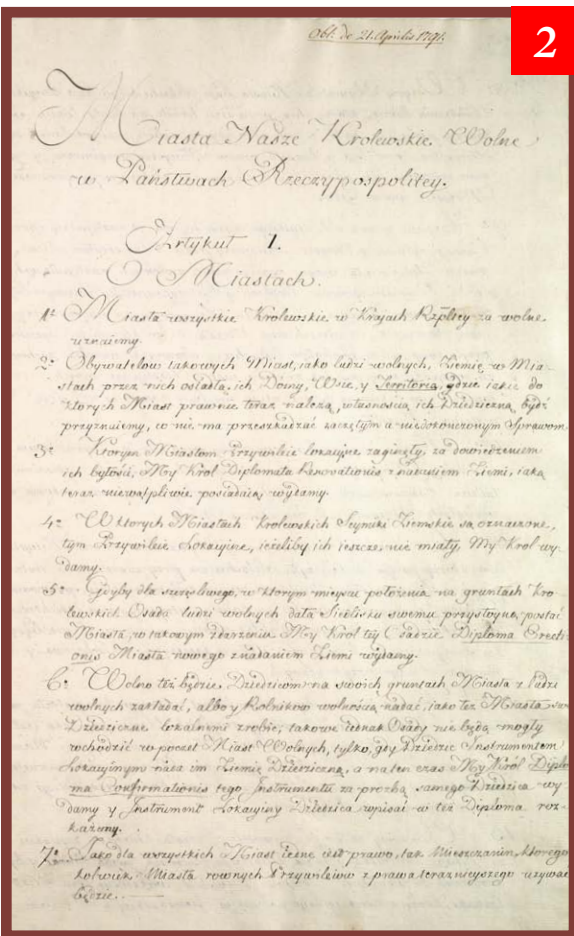 2
Obl. de 21. Aprilis 1791.
Miasta Nasze Krolewskie Wolne
w Państwach Rzeczypospolitey.
Artykuł 1.
O Miastach.
1º Miasta wszystkie Krolewskie w Krajach Rzplity za wolne
uznaiemy.
2º Obywatelow takowych Miast, iako ludzi wolnych, Ziemię w Mia-
stach przez nich osiadłą, ich Domy, Wsie, y Territoria, gdzie iakie do
ktorych Miast prawnie teraz należą, własnością ich Dziedziczną bydź
przyznaiemy, co nie ma przeszkadzać zaczętym a niedokonczonym Sprawom.
3º Ktorym Miastom Przywileie lokacyine zaginęły, za dowiedzeniem
ich bytości, My Krol Diplomata Renovationis z nadaniem Ziemi, iaką
teraz niewątpliwie posiadaią, wydamy.
4º W ktorych Miastach Krolewskich Seymiki Ziemskie są oznaczone,
tym Przywileie Lokacyine, ieżeliby ich ieszcze nie miały, My Krol wy-
damy.
5º Gdyby dla szczęśliwego, w ktorym mieyscu położenia na gruntach Kro-
lewskich Osada ludzi wolnych dała Siedlisku swemu przystoyną postać
Miasta, w takowym zdarzeniu My Krol tey Osadzie Diploma Erecti-
onis Miasta nowego z nadaniem Ziemi wydamy.
6º Wolno też będzie Dziedzicom na swoich gruntach Miasta z ludzi
wolnych zakładać, albo y Rolnikow wolnością nadać, iako też Miasta swe
Dziedziczne lokalnemi zrobić, takowe iednak Osady nie będą mogły
wchodzić w poczet Miast Wolnych, tylko, gdy Dziedzic Instrumentem
Lokacyinym nada im Ziemię Dziedziczną, a na ten czas My Król Diplo-
ma Confirmationis tego Instrumentu za prozbą samego Dziedzica wy-
damy y Instrument Lokacyiny Dziedzica wpisać w też Diploma roz-
każemy.
7º Jako dla wszystkich Miast iedne iest prawo, tak Mieszczanin, ktorego
kolwiek Miasta rownych Przywileiow z prawa teraznieyszego używać
będzie.